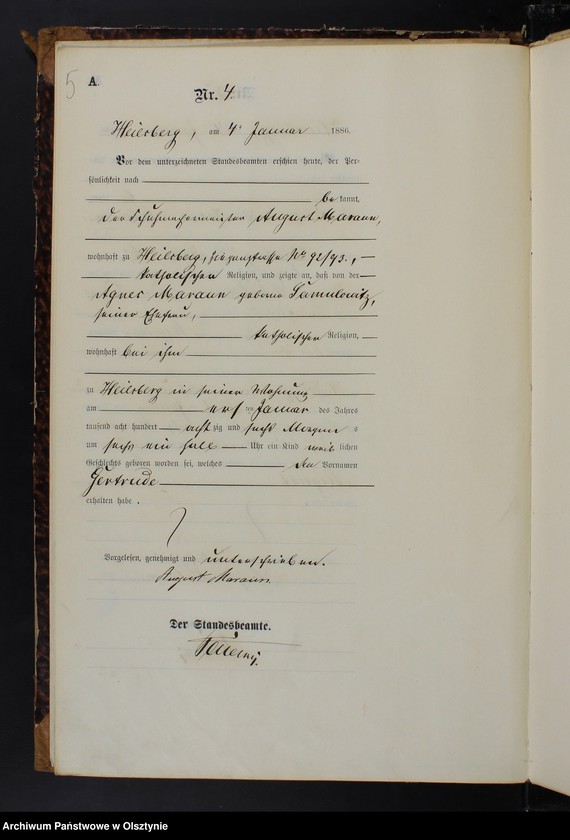 5
A.
Nr. 4.
Heilsberg, am 4. Januar 1886.
Vor dem unterzeichneten Standesbeamten erschien heute, der Per-
sönlichkeit nach
be kannt,
der Schuhmachermeister August Marann,
wohnhaft zu Heilsberg, No 92/93.,
katholischer Religion, und zeigte an, daß von der
Agnes Marann geborne
seiner Ehefrau,
katholischer Religion,
wohnhaft bei ihm
zu Heilsberg in seiner Wohnung
am ersten Januar des Jahres
tausend acht hundert achtzig und sechs Morgens
um sechs ein halb Uhr ein Kind weib lichen
Geschlechts geboren worden sei, welches den Vornamen
Gertrude
erhalten habe.
Vorgelesen, genehmigt und unterschrieben.
August Marann
Der Standesbeamte.
Archiwum Państwowe w Olsztynie